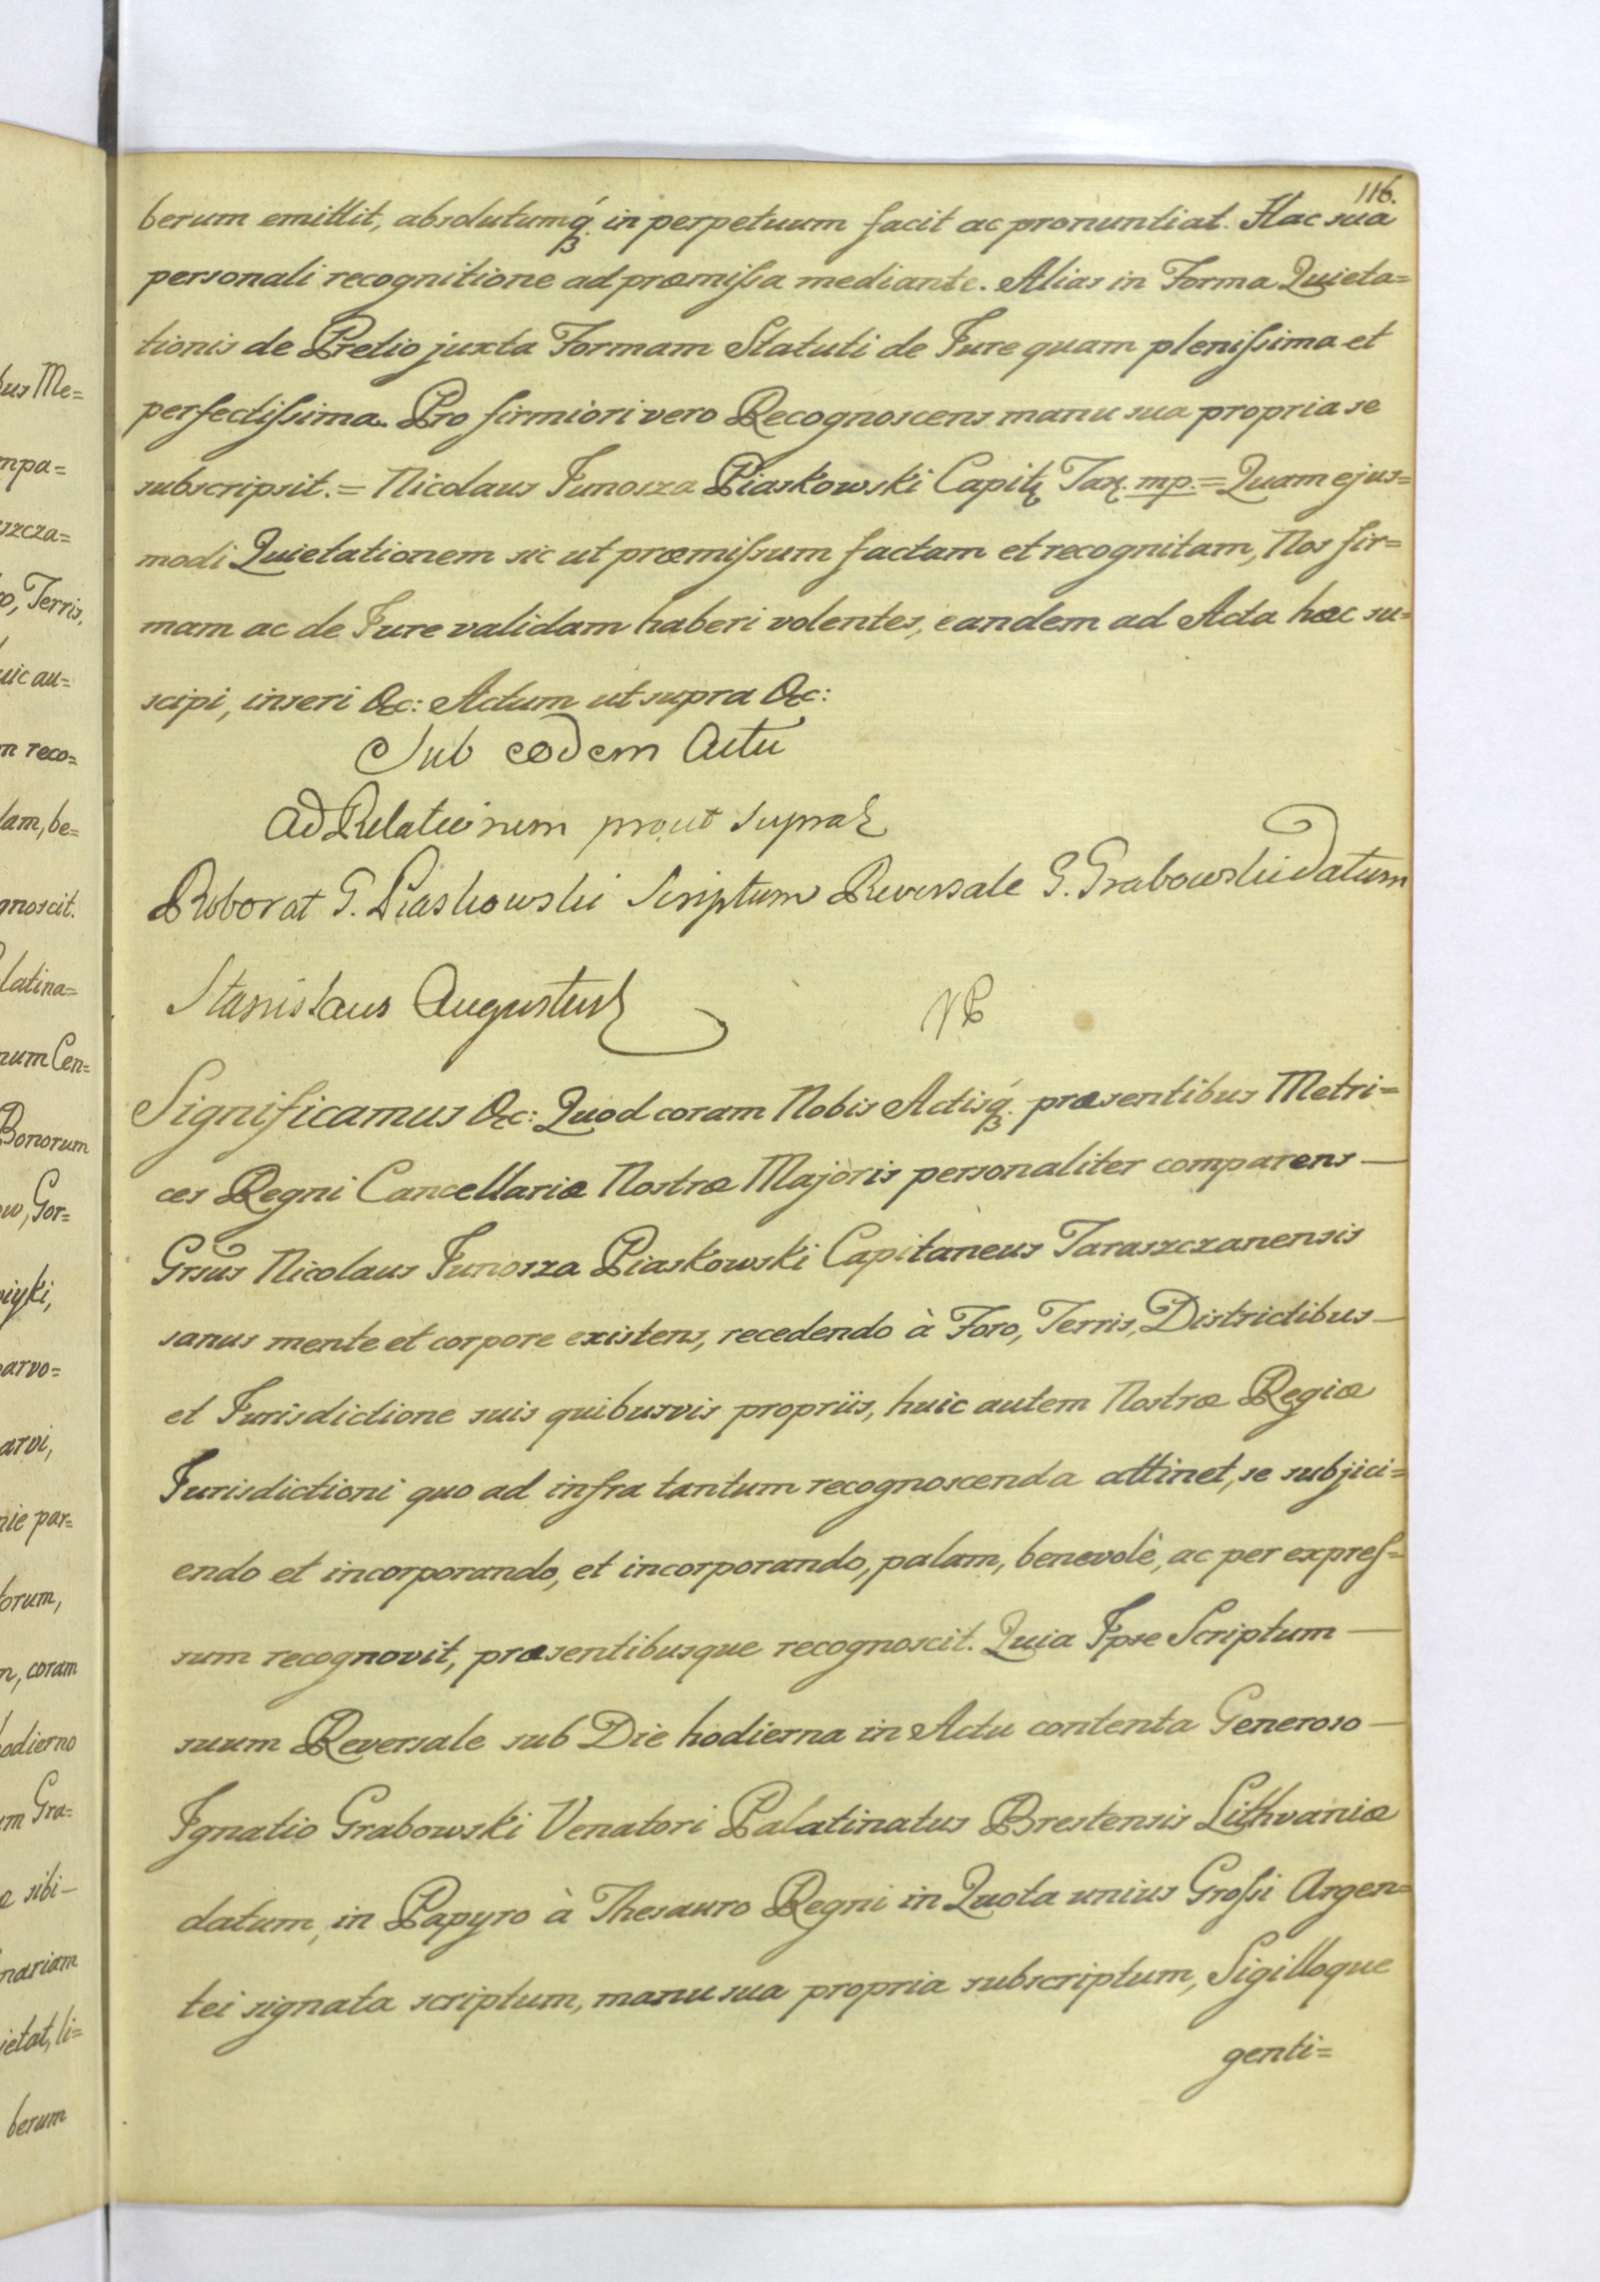 116.
berum emittit, absolutumq́ꝫ. in perpetuum facit ac pronuntiat. Hac sua
personali recognitione ad præmiſsa mediante. Alias in Forma Quieta=
tionis de Pretio juxta Formam Statuti de Jure quam pleniſsima et
perfectiſsima. Pro firmiori vero Recognoscens manu sua propria se
subscripsit. = Nicolaus Junosza Piaskowski Capitꝫ Taꝝ. mp. = Quam ejus=
modi Quietationem sic ut præmiſsum factam et recognitam, Nos fir=
mam ac de Jure validam haberi volentes, eandem ad Acta hæc su=
scipi, inseri &c: Actum ut supra &c:
Sub eodem Actu
Ad Relationem prout supra
Roborat G. Piaskowski Scriptum Reversale G. Grabowski datum
Stanislaus Augustus
Significamus &c: Quod coram Nobis Actisq́ꝫ. præsentibus Metri=
ces Regni Cancellariæ Nostræ Majoris personaliter comparens —
Grsus Nicolaus Junosza Piaskowski Capitaneus Taraszczanensis
sanus mente et corpore existens, recedendo à Foro, Terris, Districtibus —
et Jurisdictione suis quibusvis propriis, huic autem Nostræ Regiæ
Jurisdictioni quo ad infra tantum recognoscenda attinet, se subjici=
endo et incorporando, et incorporando, palam, benevolè, ac per expreſ=
sum recognovit, præsentibusque recognoscit. Quia Ipse Scriptum —
suum Reversale sub Die hodierna in Actu contenta Generoso —
Ignatio Grabowski Venatori Palatinatus Brestensis Lithvaniæ
datum, in Papyro à Thesauro Regni in Quota unius Groſsi Argen=
tei signata scriptum, manu sua propria subscriptum, Sigilloque
genti=